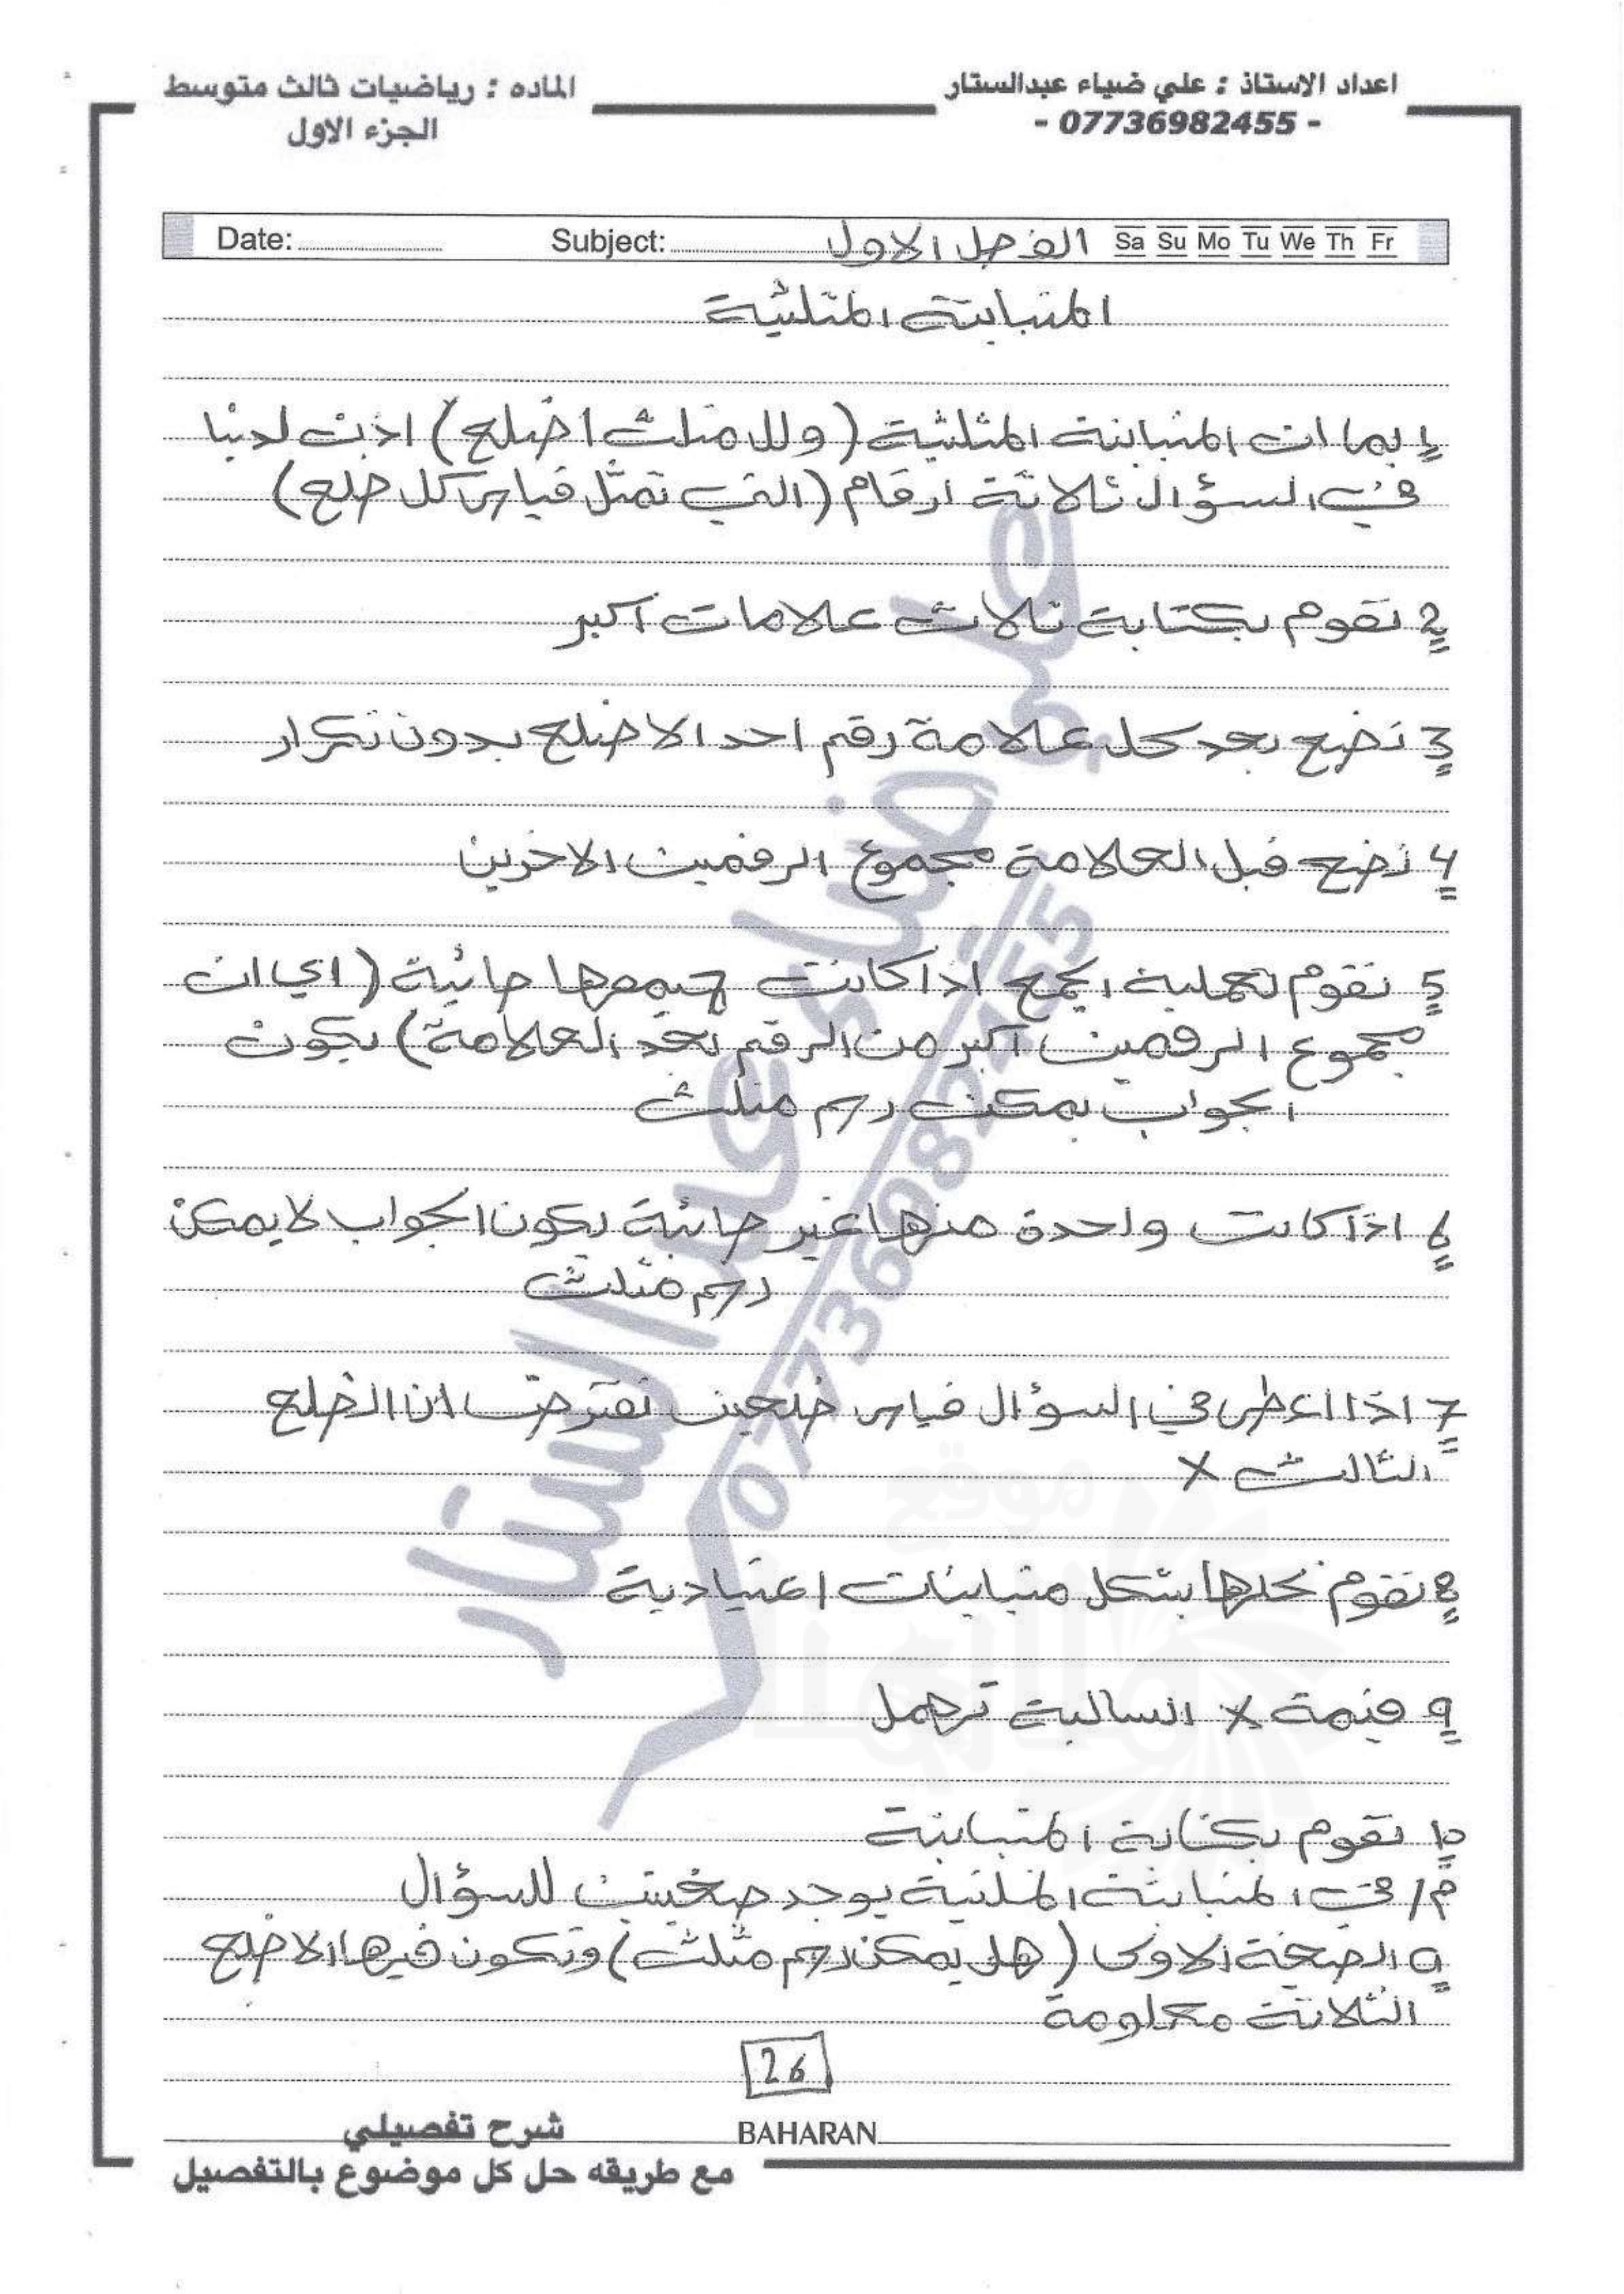 اعداد الاستاذ : علي ضياء عبدالستار
- 07736982455 -
الماده : رياضيات ثالث متوسط
الجزء الاول
Date: Subject: الفصل الاول Sa Su Mo Tu We Th Fr
المتباينة المثلثية
1 بما ان المتباينة المثلثية (وللمثلث اضلع) اذن لدينا
في السؤال ثلاثة ارقام (التي تمثل قياس كل ضلع)
2 نقوم بكتابة ثلاث علامات اكبر
3 نضع بعد كل علامة رقم احد الاضلع بدون تكرار
4 نضع قبل العلامة مجموع الرقمين الاخرين
5 نقوم بعملية الجمع اذا كانت جميعها صائبة (اي ان
مجموع الرقمين اكبر من الرقم بعد العلامة) يكون
الجواب يمكن رسم مثلث
6 اذا كانت واحدة منها غير صائبة يكون الجواب لا يمكن
رسم مثلث
7 اذا اعطى في السؤال قياس ضلعين نفترض ان الضلع
الثالث x
8 نقوم بحلها بشكل متباينات اعتيادية
9 قيمة x السالبة تهمل
10 نقوم بكتابة المتباينة
م/ في المتباينة المثلثية يوجد صيغتين للسؤال
a الصيغة الاولى (هل يمكن رسم مثلث) وتكون فيها الاضلع
الثلاثة معلومة
26
BAHARAN
شرح تفصيلي
مع طريقه حل كل موضوع بالتفصيل
علي ضياء عبد الستار
07736982455
موقع